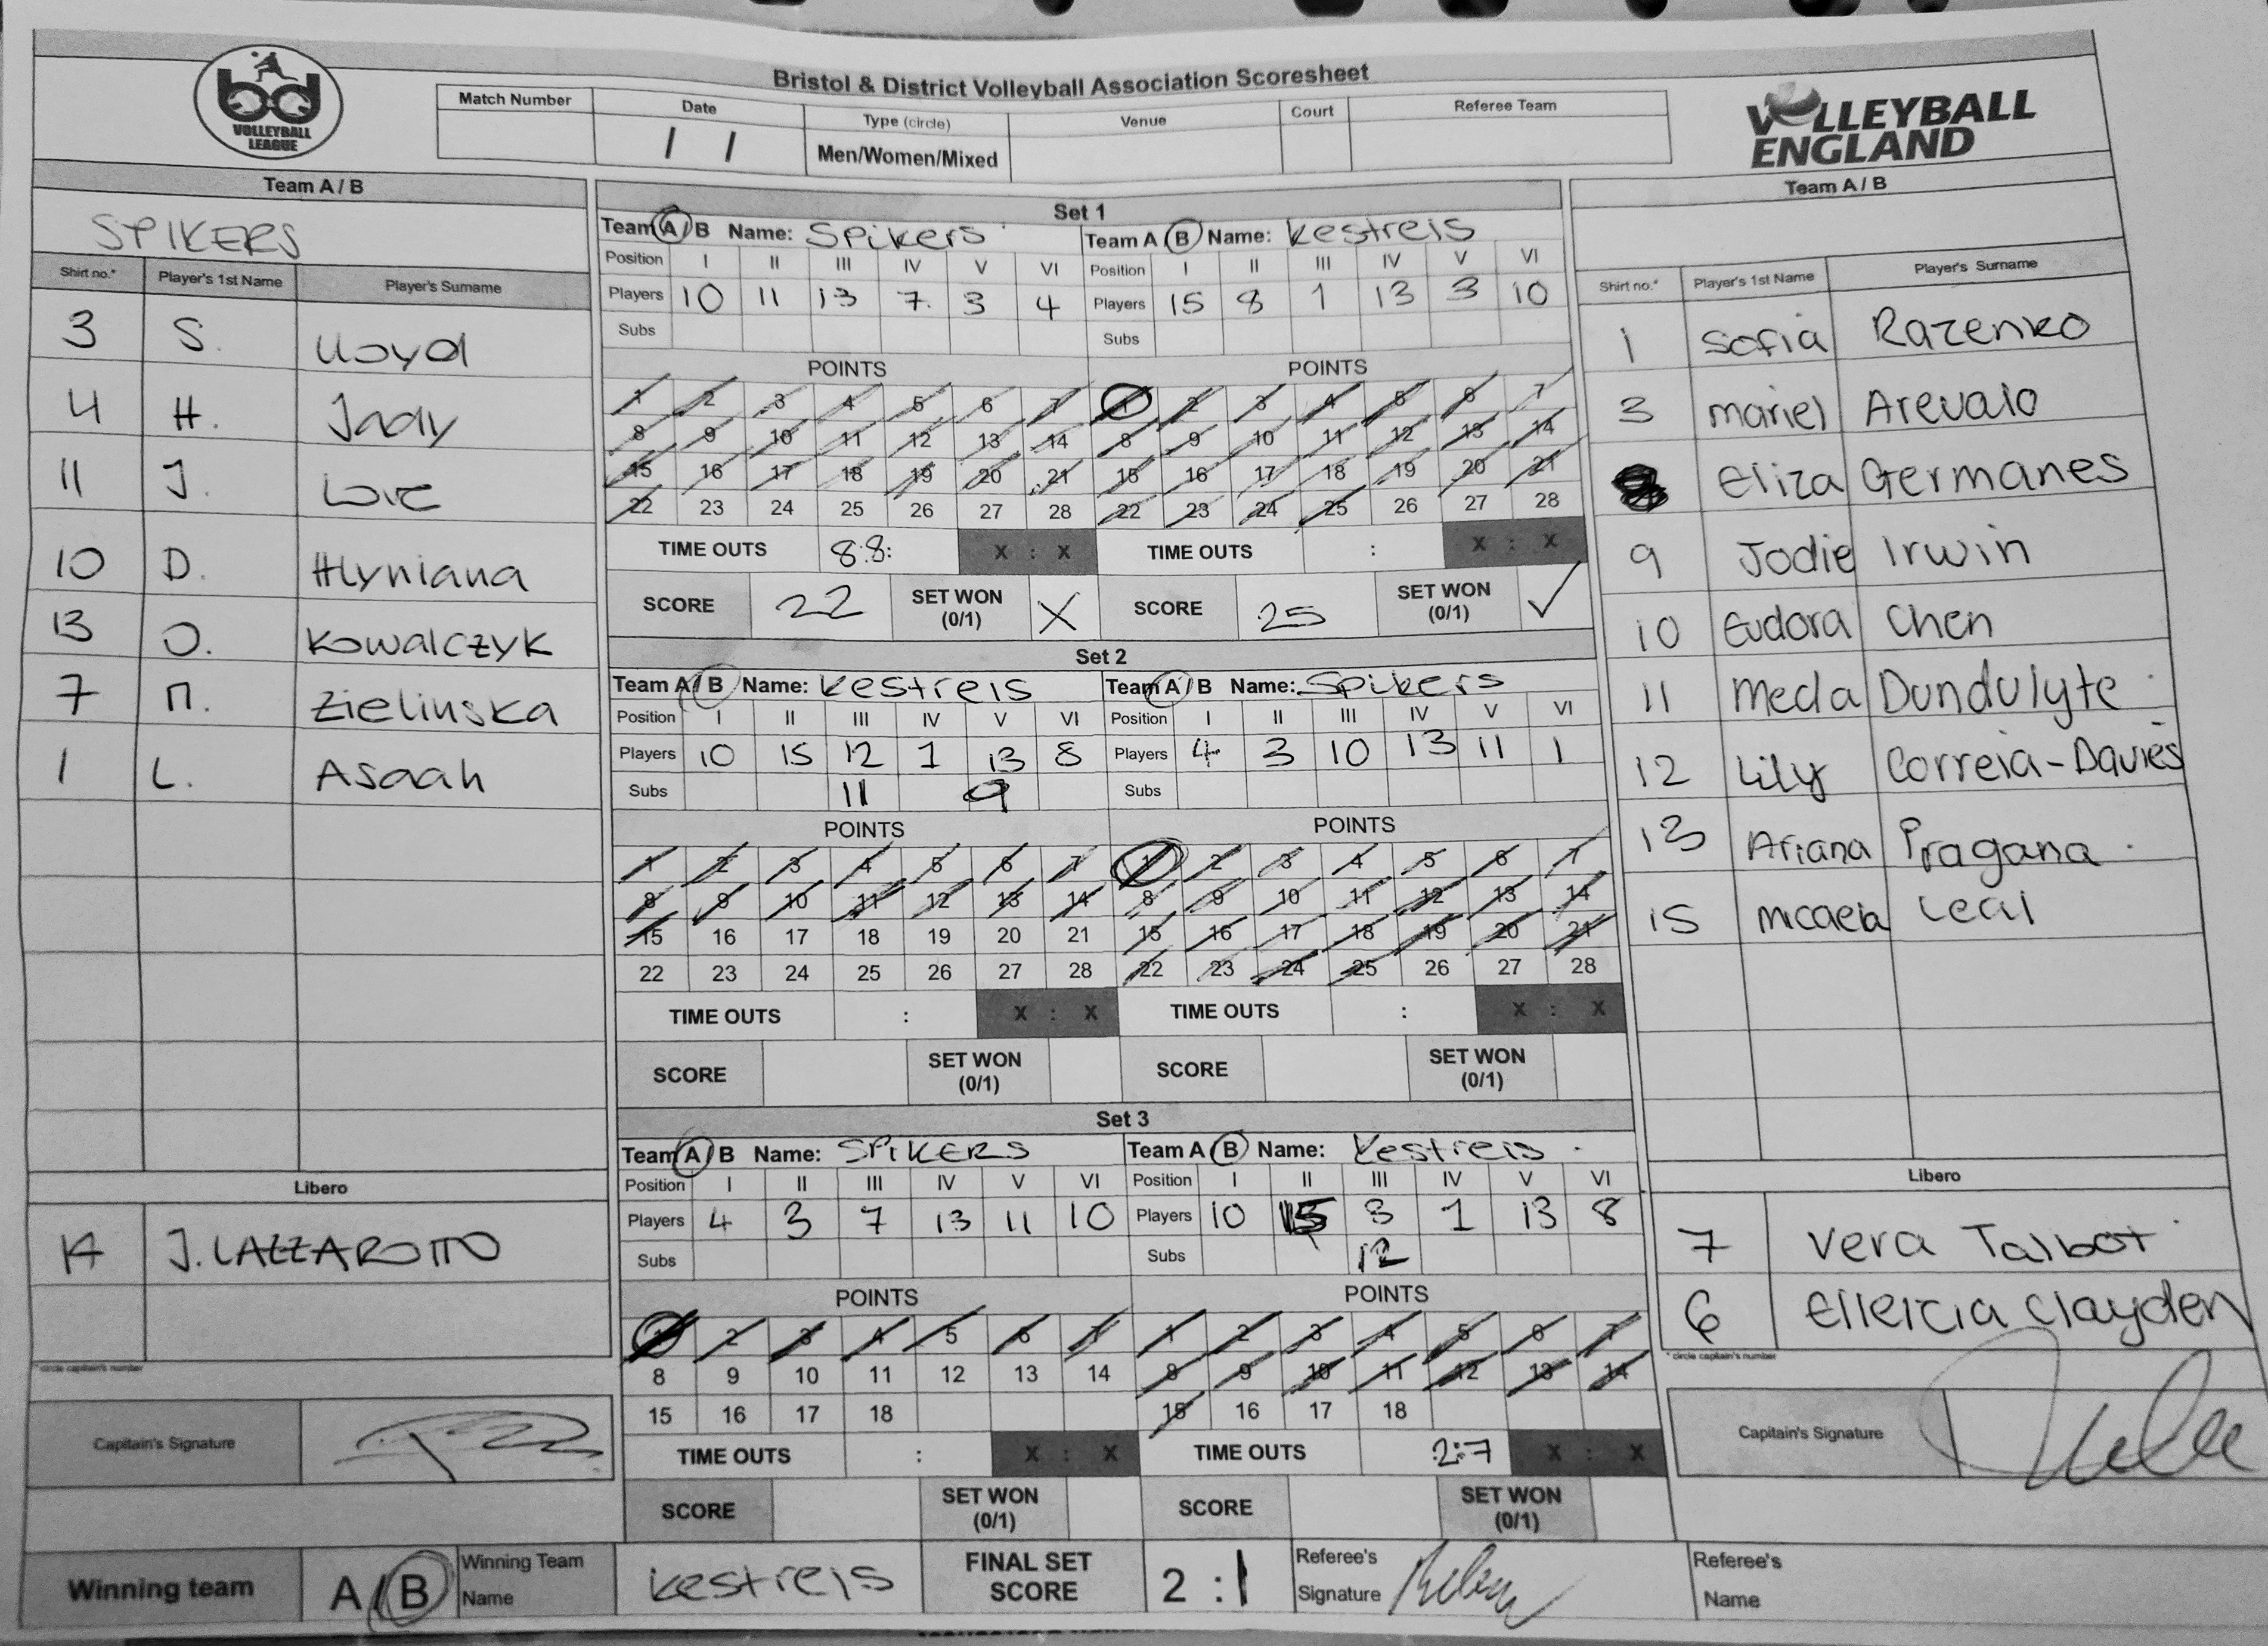 Bristol & District Volleyball Association Scoresheet
bd
VOLLEYBALL
LEAGUE
Match Number
Date
/ /
Type (circle)
Men/Women/Mixed
Venue
Court
Referee Team
VOLLEYBALL
ENGLAND
Team A / B
SPIKERS
Shirt no.* Player's 1st Name Player's Surname
3 S. Lloyd
4 H. Jady
11 J.
10 D. Hlyniana
13 O. Kowalczyk
7 M. Zielinska
1 L. Asaah
Libero
14 J. LAZZAROTTO
* circle captain's number
Capitain's Signature
Set 1
Team A / B Name: Spikers
Position I II III IV V VI
Players 10 11 13 7. 3 4
Subs
POINTS
1 2 3 4 5 6 7
8 9 10 11 12 13 14
15 16 17 18 19 20 21
22 23 24 25 26 27 28
TIME OUTS 8:8: X : X
SCORE 22 SET WON (0/1) X
Team A / B Name: Kestrels
Position I II III IV V VI
Players 15 8 1 13 3 10
Subs
POINTS
1 2 3 4 5 6 7
8 9 10 11 12 13 14
15 16 17 18 19 20 21
22 23 24 25 26 27 28
TIME OUTS : X : X
SCORE 25 SET WON (0/1) ✓
Set 2
Team A / B Name: Kestrels
Position I II III IV V VI
Players 10 15 12 1 13 8
Subs 11 9
POINTS
1 2 3 4 5 6 7
8 9 10 11 12 13 14
15 16 17 18 19 20 21
22 23 24 25 26 27 28
TIME OUTS : X : X
SCORE SET WON (0/1)
Team A / B Name: Spikers
Position I II III IV V VI
Players 4 3 10 13 11 1
Subs
POINTS
1 2 3 4 5 6 7
8 9 10 11 12 13 14
15 16 17 18 19 20 21
22 23 24 25 26 27 28
TIME OUTS : X : X
SCORE SET WON (0/1)
Set 3
Team A / B Name: SPIKERS
Position I II III IV V VI
Players 4 3 7 13 11 10
Subs
POINTS
1 2 3 4 5 6 7
8 9 10 11 12 13 14
15 16 17 18
TIME OUTS : X : X
SCORE SET WON (0/1)
Team A / B Name: Kestrels
Position I II III IV V VI
Players 10 15 3 1 13 8
Subs 12
POINTS
1 2 3 4 5 6 7
8 9 10 11 12 13 14
15 16 17 18
TIME OUTS 2:7 X : X
SCORE SET WON (0/1)
Team A / B
Shirt no.* Player's 1st Name Player's Surname
1 Sofia Razenko
3 Mariel Arevalo
Eliza Germanes
9 Jodie Irwin
10 Eudora Chen
11 Meda Dundulyte
12 Lily Correia-Davies
13 Ariana Pragana
15 Micaela Leal
Libero
7 Vera Talbot
6 Clayden
* circle captain's number
Capitain's Signature
Winning team A / B
Winning Team Name Kestrels
FINAL SET SCORE 2 : 1
Referee's Signature
Referee's Name